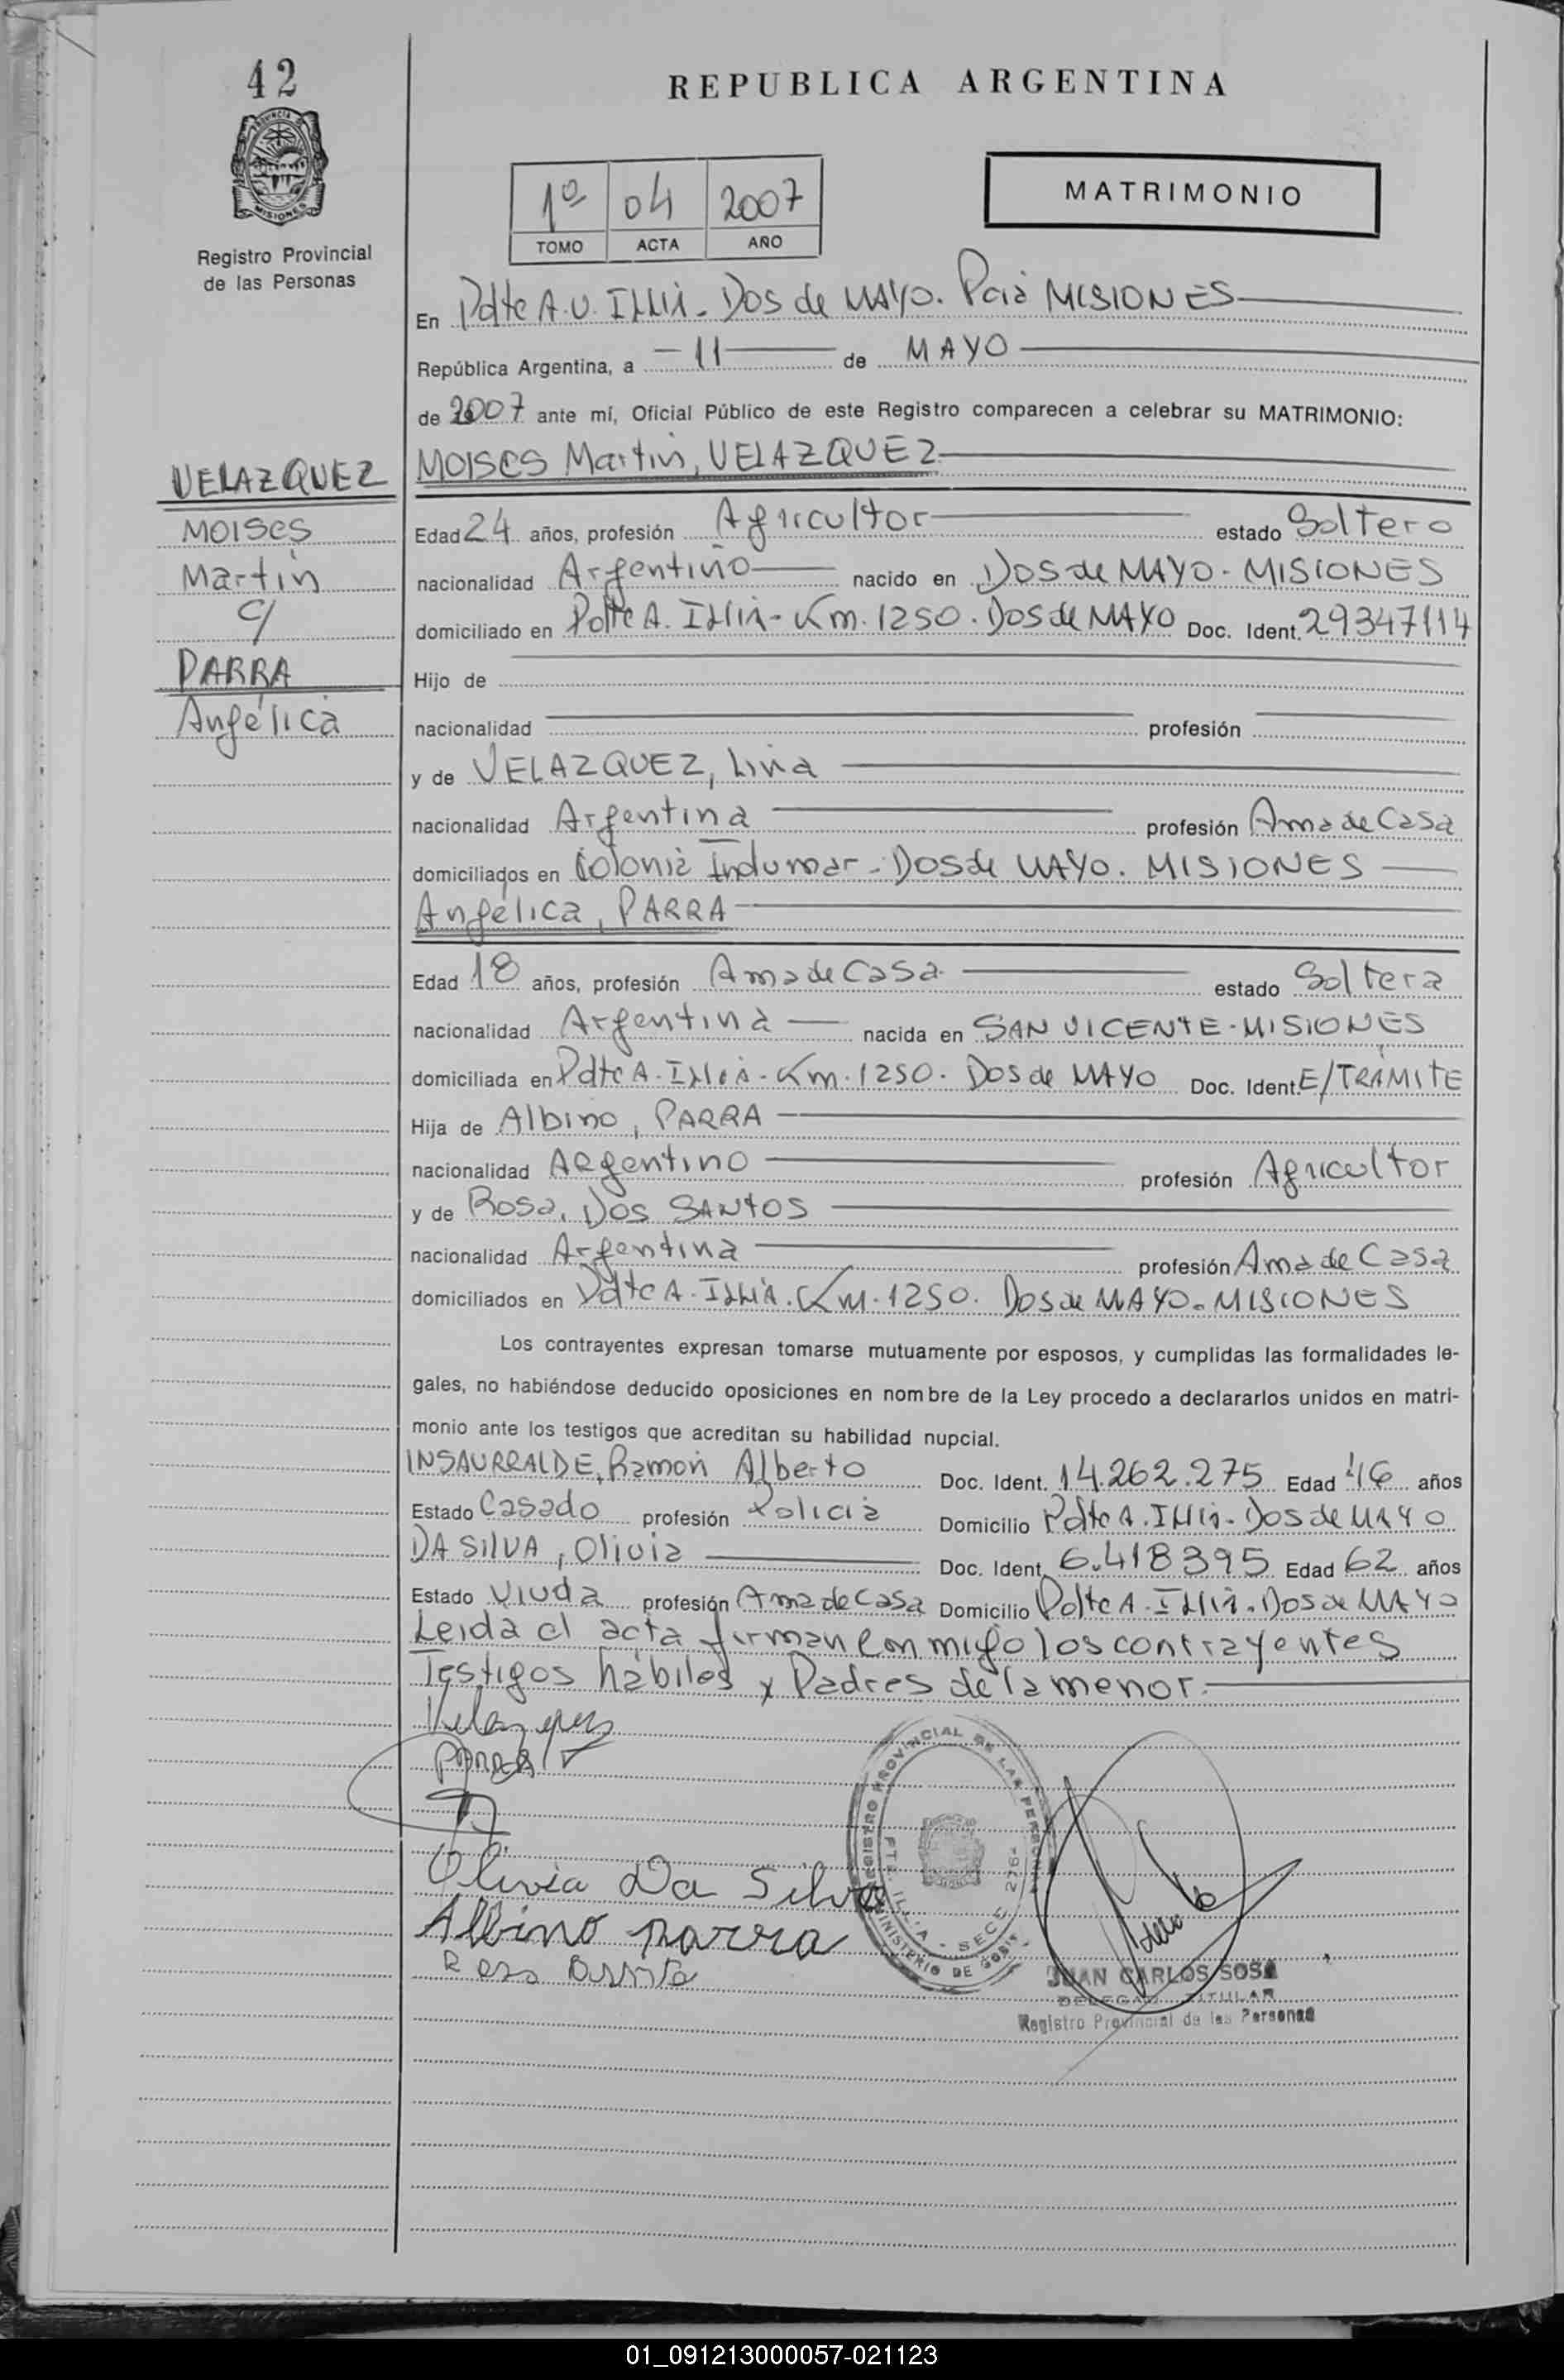 42
REPUBLICA ARGENTINA
PROVINCIA DE
MISIONES
Registro Provincial
de las Personas
1º 04 2007
TOMO ACTA AÑO
MATRIMONIO
En Pdte A.U. ILLIA - Dos de MAYO. Pcia MISIONES
República Argentina, a - 11 - de MAYO
de 2007 ante mí, Oficial Público de este Registro comparecen a celebrar su MATRIMONIO:
VELAZQUEZ
MOISES
Martin
C/
PARRA
Angélica
MOISES Martin, VELAZQUEZ
Edad 24 años, profesión Agricultor estado Soltero
nacionalidad Argentino nacido en Dos de MAYO - MISIONES
domiciliado en Pdte A. ILLIA - Km. 1250. Dos de MAYO Doc. Ident. 29347114
Hijo de
nacionalidad profesión
y de VELAZQUEZ, Lina
nacionalidad Argentina profesión Ama de Casa
domiciliados en Colonia Indumar - Dos de MAYO. MISIONES
Angélica, PARRA
Edad 18 años, profesión Ama de Casa estado Soltera
nacionalidad Argentina nacida en SAN VICENTE - MISIONES
domiciliada en Pdte A. ILLIA - Km. 1250. Dos de MAYO Doc. Ident. E/TRÁMITE
Hija de Albino, PARRA
nacionalidad Argentino profesión Agricultor
y de Rosa, Dos SANTOS
nacionalidad Argentina profesión Ama de Casa
domiciliados en Pdte A. ILLIA. Km. 1250. Dos de MAYO. MISIONES
Los contrayentes expresan tomarse mutuamente por esposos, y cumplidas las formalidades le-
gales, no habiéndose deducido oposiciones en nombre de la Ley procedo a declararlos unidos en matri-
monio ante los testigos que acreditan su habilidad nupcial.
INSAURRALDE, Ramón Alberto Doc. Ident. 14.262.275 Edad 46 años
Estado Casado profesión Policia Domicilio Pdte A. ILLIA - Dos de MAYO
DA SILVA, Olivia Doc. Ident. 6.418395 Edad 62 años
Estado Viuda profesión Ama de Casa Domicilio Pdte A. ILLIA. Dos de MAYO
Leida el acta firman con migo los contrayentes
Testigos hábiles y Padres de la menor.
Velazquez
PARRA
Olivia Da Silva
Albino parra
REGISTRO PROVINCIAL DE LAS PERSONAS
PTE. ILLIA - SECC 2764
MINISTERIO DE GOB
JUAN CARLOS SOSA
DELEGADO TITULAR
Registro Provincial de las Personas
01_091213000057-021123